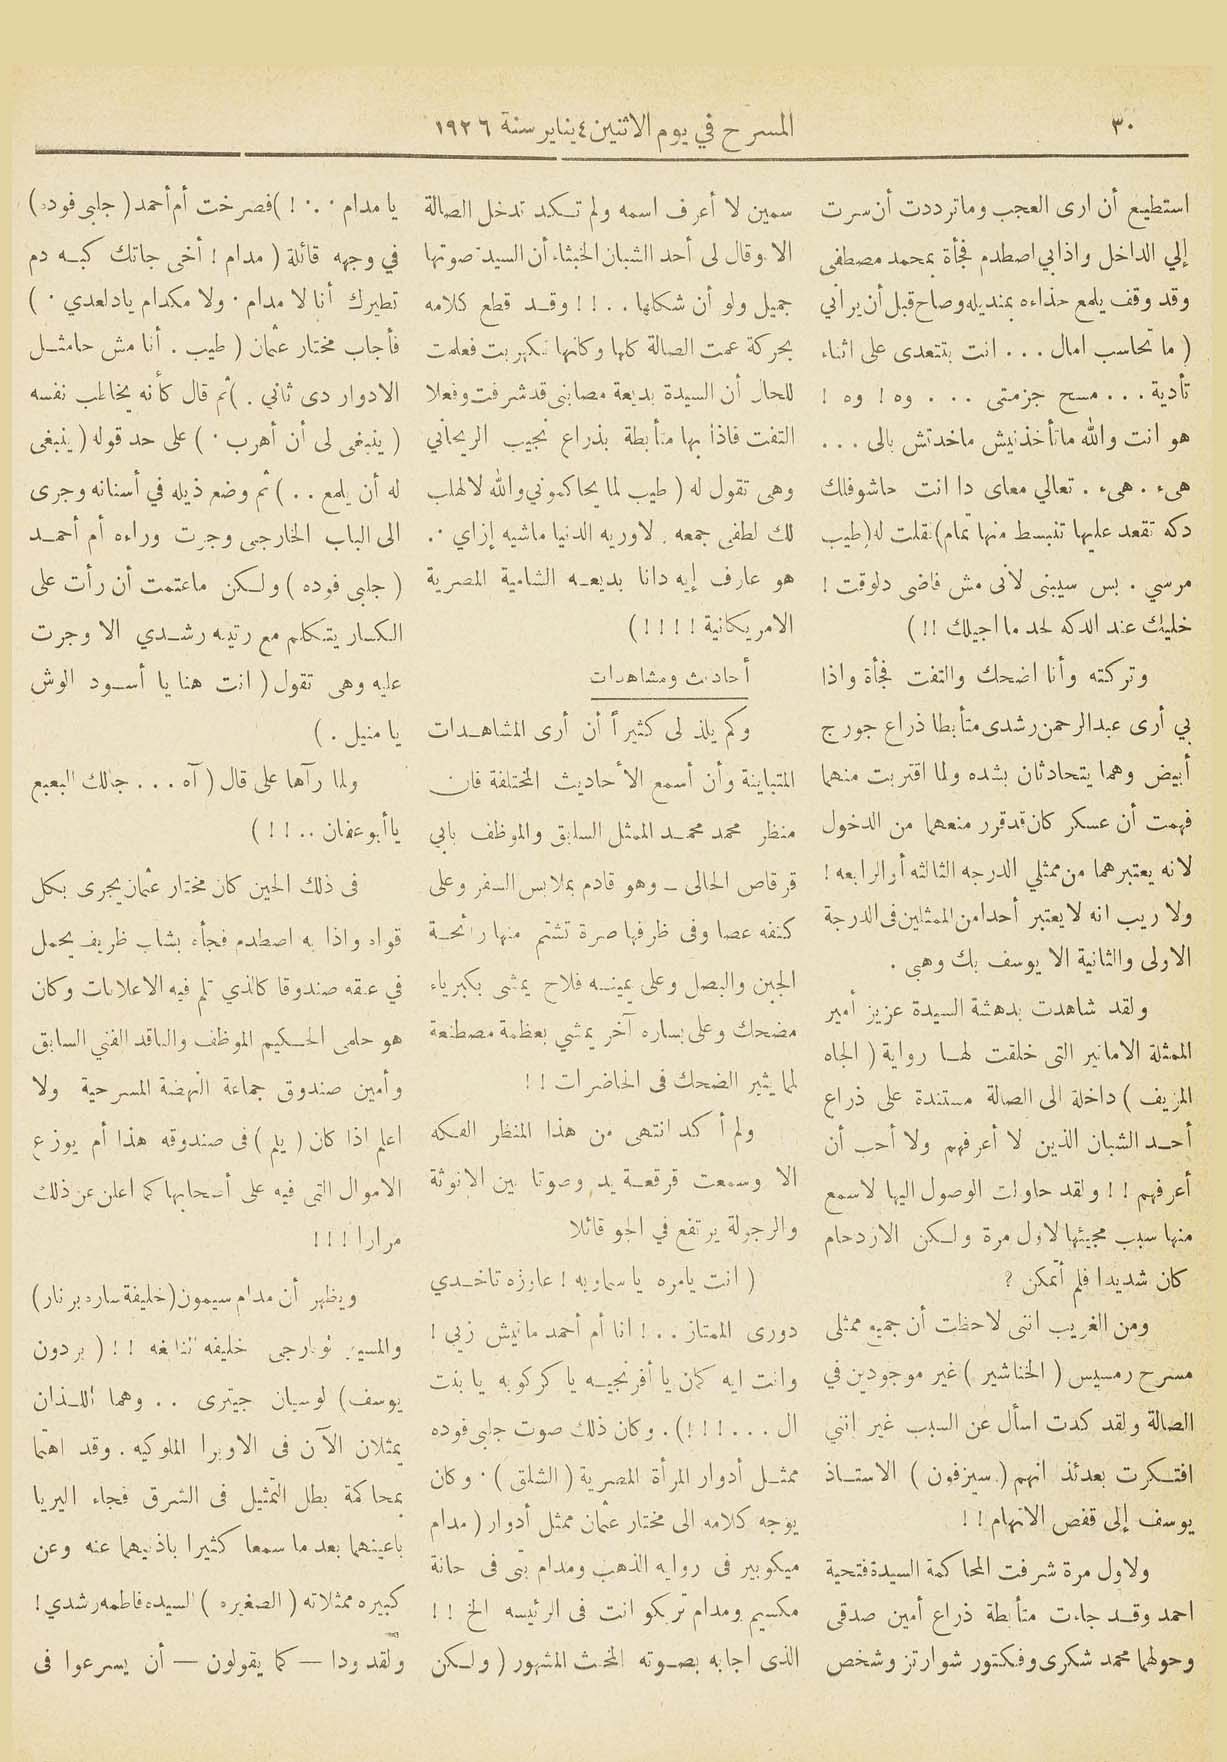 ٣٠
المسرح في يوم الاثنين ٤ يناير سنة ١٩٢٦
استطيع أن ارى العجب وما ترددت أن سرت
إلي الداخل واذا بي اصطدم فجأة بمحمد مصطفى
وقد وقف يلمع حذاءه بمنديله وصاح قبل أن يراني
( ما تحاسب امال . . . انت بتتعدى على اثناء
تأدية . . . مسح جزمتى . . . وه ! وه !
هو انت والله ما تأخذنيش ماخدتش بالى . . .
هىء . هىء . تعالي معاى دا انت حاشوفلك
دكه تقعد عليها تنبسط منها تمام ) فقلت له ( طيب
مرسي . بس سيبنى لانى مش فاضى دلوقت !
خليك عند الدكه لحد ما اجيلك !! )
وتركته وأنا اضحك والتفت فجأة واذا
بي أرى عبد الرحمن رشدى متأبطا ذراع جورج
أبيض وهما يتحادثان بشده ولما اقتربت منهما
فهمت أن عسكر كان قد قرر منعهما من الدخول
لانه يعتبرهما من ممثلي الدرجه الثالثه أو الرابعه !
ولا ريب انه لا يعتبر أحدا من الممثلين فى الدرجة
الاولى والثانية الا يوسف بك وهبى .
ولقد شاهدت بدهشة السيدة عزيز أمير
الممثلة الامانير التى خلقت لهـا رواية ( الجاه
المزيف ) داخلة الى الصالة مستندة على ذراع
أحـد الشبان الذين لا أعرفهم ولا أحب أن
أعرفهم !! ولقد حاولت الوصول اليها لاسمع
منها سبب مجيئها لاول مرة ولـكن الازدحام
كان شديدا فلم أتمكن ؟
ومن الغريب اننى لاحظت أن جميع ممثلى
مسرح رمسيس ( الخناشير ) غير موجودين في
الصالة ولقد كدت اسأل عن السبب غير انني
افتـكرت بعدئذ انهم ( سيزفون ) الاستـاذ
يوسف إلى قفص الاتهام !!
ولاول مرة شرفت المحاكمة السيدة فتحية
احمد وقـد جاءت متأبطة ذراع أمين صدقى
وحولهما محمد شكرى وفكتور شوارتز وشخص
سمين لا أعرف اسمه ولم تـكد تدخل الصالة
الا وقال لى أحد الشبان الخبثاء أن السيدة صوتها
جميل ولو أن شكلها . . !! وقـد قطع كلامه
بحركة عمت الصالة كلها وكانها تكهربت فعلمت
للحال أن السيدة بديعة مصابنى قد شرفت وفعلا
التفت فاذا بها متأبطة بذراع نجيب الريحاني
وهى تقول له ( طيب لما يحاكموني والله لالهلب
لك لطفى جمعه . لاوريه الدنيا ماشيه إزاي .
هو عارف إيه دانا بديعـه الشامية المصرية
الامريكانية !!!! )
أحاديث ومشاهدات
وكم يلذ لى كثيراً أن أرى المشاهـدات
المتباينة وأن أسمع الأحاديث المختلفة فان
منظر محمد محمـد الممثل السابق والموظف بابي
قرقاص الحالى ـ وهو قادم بملابس السفر وعلى
كتفه عصا وفى ظرفها صرة تشتم منها رائحـة
الجبن والبصل وعلى يمينـه فلاح يمشى بكبرياء
مضحك وعلى يساره آخر يمشي بعظمة مصطنعة
لمما يثير الضحك فى الحاضرات !!
ولم أكد انتهى من هذا المنظر الفكه
الا وسمعت قرقعـة يد وصوتا بين الانوثة
والرجولة يرتفع في الجو قائلا
( انت يامره ياسماويه ! عاوزه تاخـدي
دورى الممتاز . . ! انا أم أحمد مانيش زيي !
وانت ايه كمان يا أفرنجيـه يا كركوبه يا بنت
ال . . . !!! ) . وكان ذلك صوت جلبى فوده
ممثـل أدوار المرأة المصرية ( الشلق ) . وكان
يوجه كلامه الى مختار عثمان ممثل أدوار ( مدام
ميكوبير فى روايه الذهب ومدام بتى فى حانة
مكسيم ومدام تريكو انت فى الرئيسه الخ !!
الذى اجابه بصـوته المخنث المشهور ( ولـكن
يا مدام . . . ! ) فصرخت أم أحمد ( جلبى فوده )
في وجهه قائلة ( مدام ! أخى جاتك كبـه دم
تطيرك أنا لا مدام . ولا مكدام يادلعدي . )
فأجاب مختار عثمان ( طيب . أنا مش حامثـل
الادوار دى ثاني . ) ثم قال كأنه يخاطب نفسه
( ينبغى لى أن أهرب . ) على حد قوله ( ينبغى
له أن يلمع . . ) ثم وضع ذيله في أسنانه وجرى
الى الباب الخارجى وجرت وراءه أم أحمـد
( جلبى فوده ) ولـكن ماعتمت أن رأت على
الكسار يتـكلم مع رتيبه رشـدي الا وجرت
عليه وهى تقول ( انت هنا يا أسـود الوش
يا منيل . )
ولما رآها على قال ( آه . . . جالك البعبع
يا أبو عفان .. !! )
فى ذلك الحين كان مختار عثمان يجرى بكل
قواه واذا به اصطدم فجأه بشاب ظريف يحمل
في عنقه صندوقا كالذي تلم فيه الاعلانات وكان
هو حلمى الحـكيم الموظف والناقد الفني السابق
وأمين صندوق جماعة النهضة المسرحية ولا
اعلم اذا كان ( يلم ) فى صندوقه هذا أم يوزع
الاموال التى فيه على أصحابها كما اعلن عن ذلك
مرارا !!!
ويظهر أن مدام سيمون ( خليفة ساره برنار )
والمسيو نوبارجى خليفه !! ( بردون
يوسف ) لوسيان جيترى . . وهما اللـذان
يمثلان الآن فى الاوبرا الملوكيه . وقد اهتما
بمحاكمة بطل التمثيل فى الشرق فجاء اليريا
باعينهما بعد ما سمعا كثيرا باذنيهما عنه وعن
كبيره ممثلاته ( الصغيره ) السيده فاطمه رشدي !
ولقد ودا — كما يقولون — أن يسرعوا فى